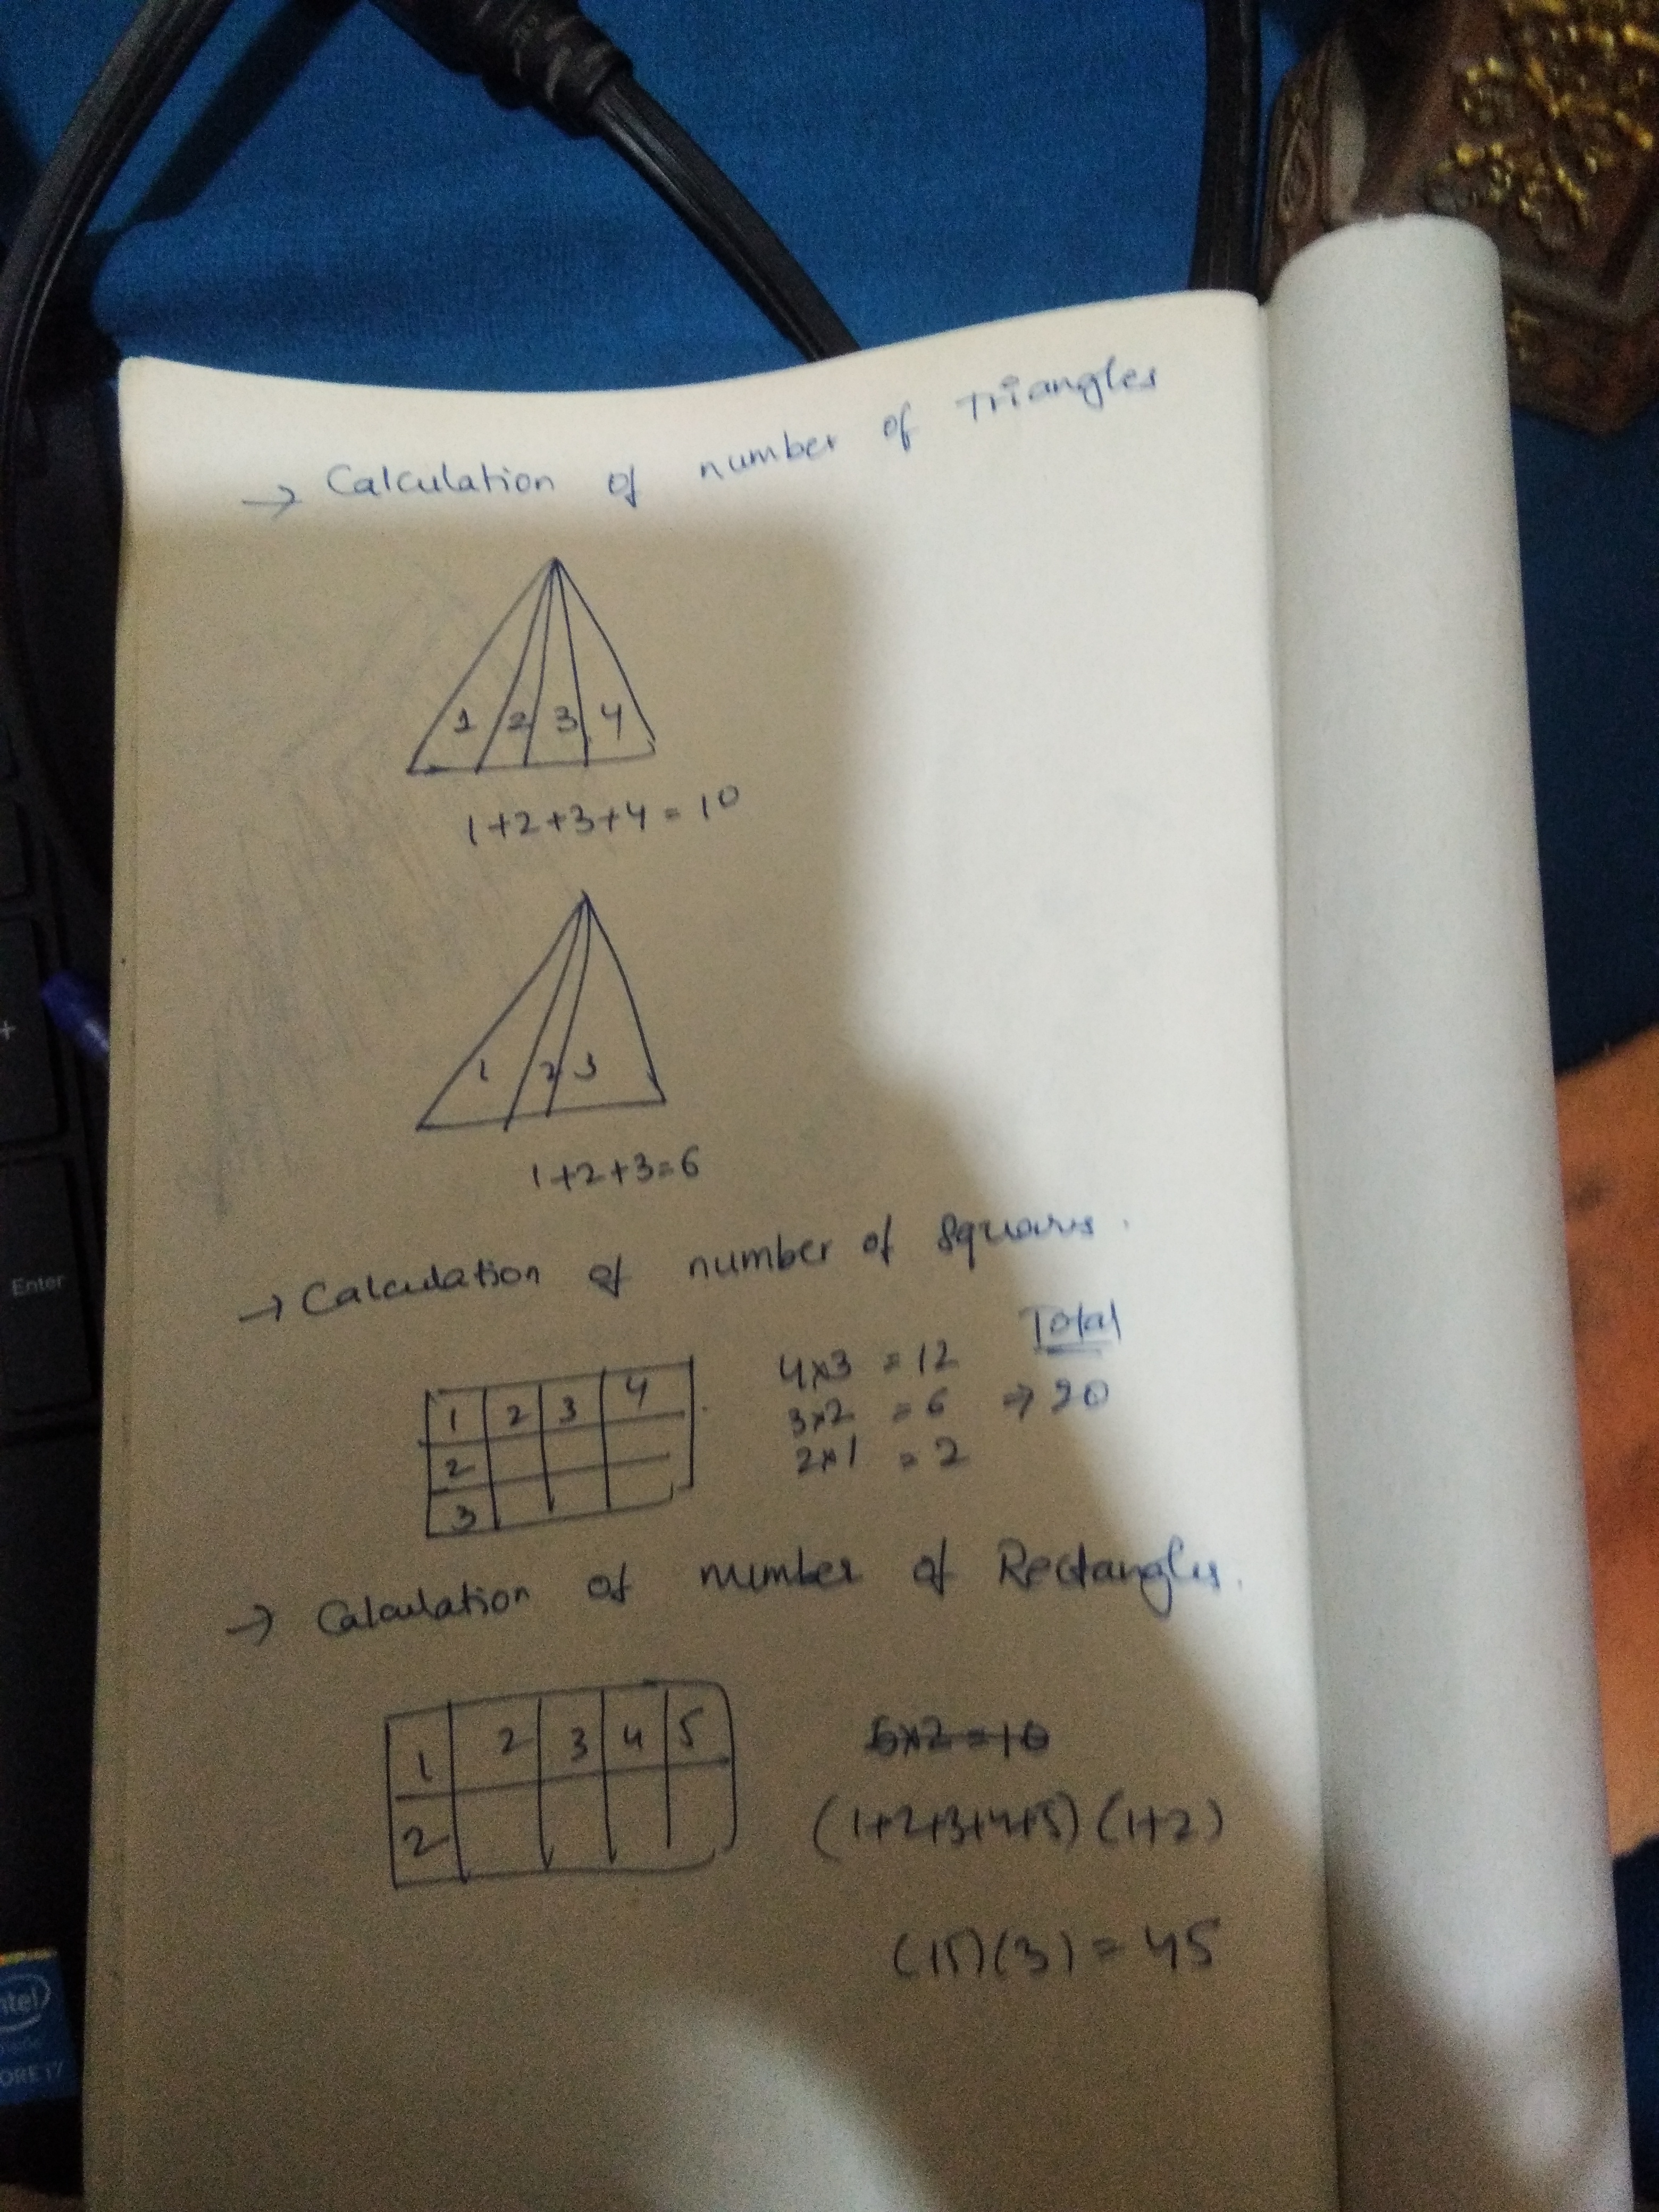 → Calculation of number of Triangles
1 2 3 4
1+2+3+4 = 10
1 2 3
1+2+3=6
→ Calculation of number of Squares.
Total
1 2 3 4
2
3
4x3 = 12
3x2 = 6 → 20
2x1 = 2
→ Calculation of number of Rectangles.
1 2 3 4 5
2
5x2=10
(1+2+3+4+5) (1+2)
(15)(3) = 45
+
Enter
intel
CORE i7